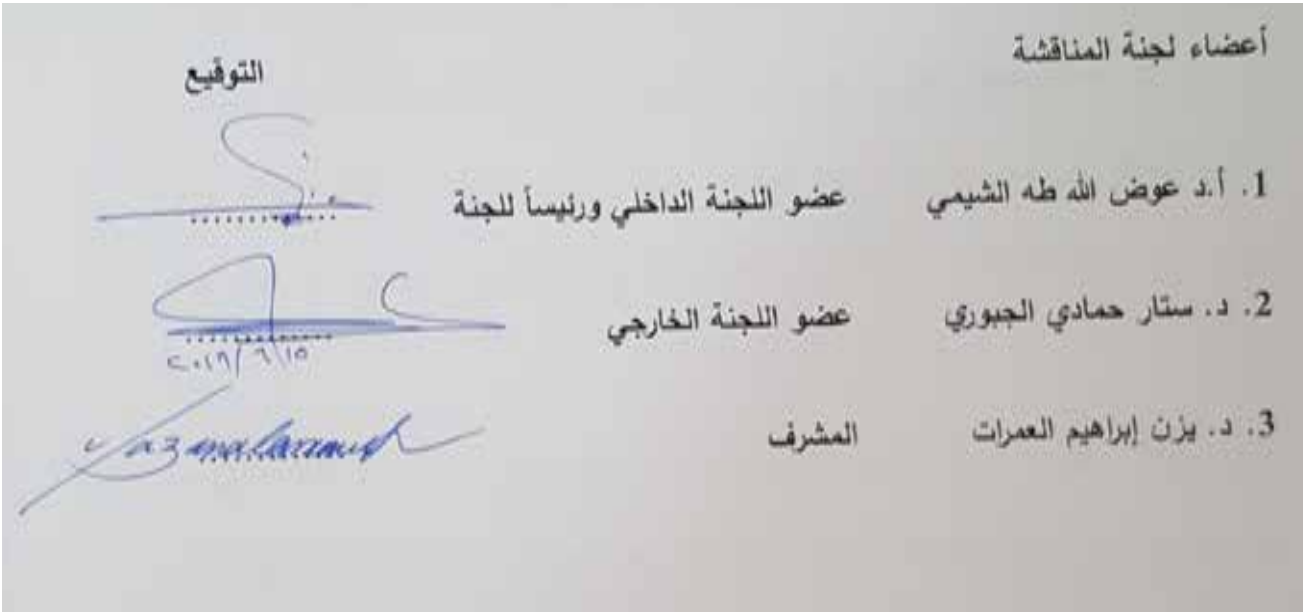 أعضاء لجنة المناقشة التوقيع
1. أ.د عوض الله طه الشيمي عضو اللجنة الداخلي ورئيساً للجنة ..............
2. د. ستار حمادي الجبوري عضو اللجنة الخارجي ..............
3. د. يزن إبراهيم العمرات المشرف